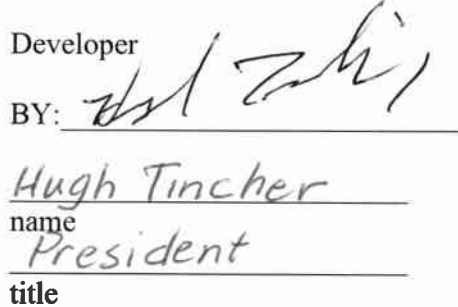 Developer
BY:
Hugh Tincher
name
President
title